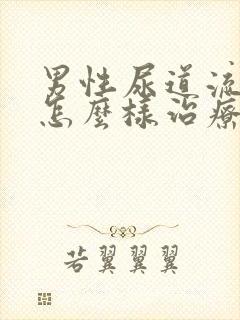 男性尿道流
怎麼樣治療
若翼翼翼